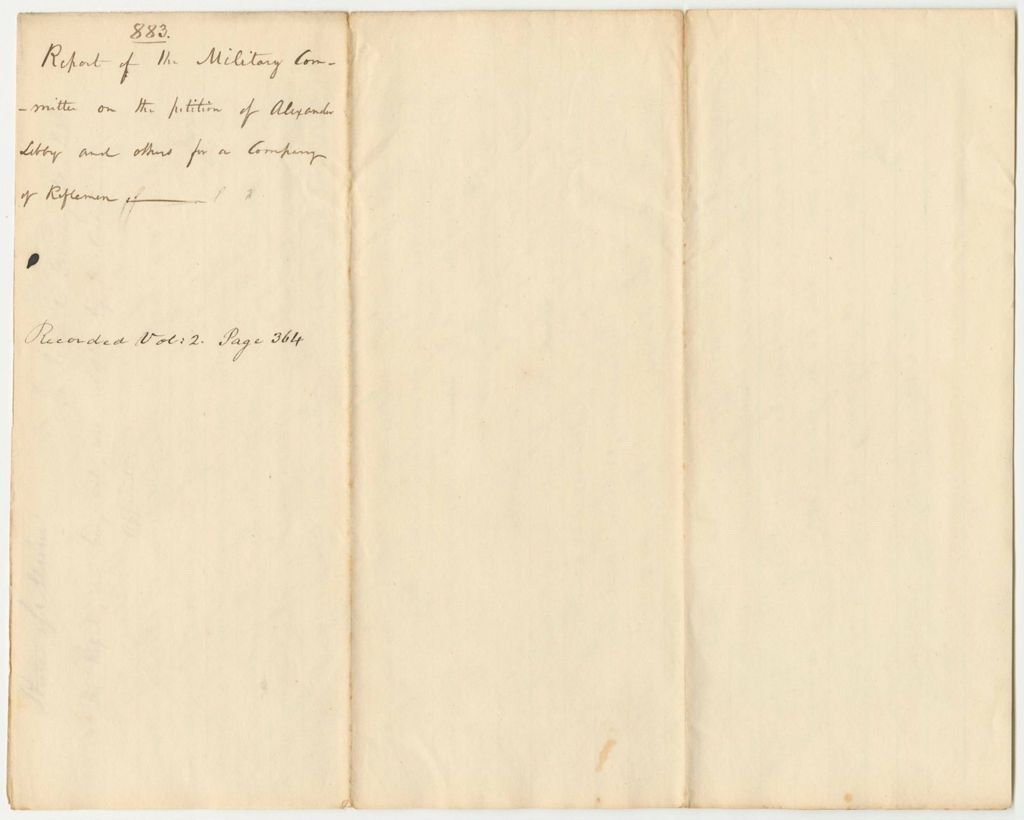 883.
Report of the Military Com-
-mittee on the petition of Alexander
Libby and others for a Company
of Riflemen
Recorded Vol: 2. Page 364